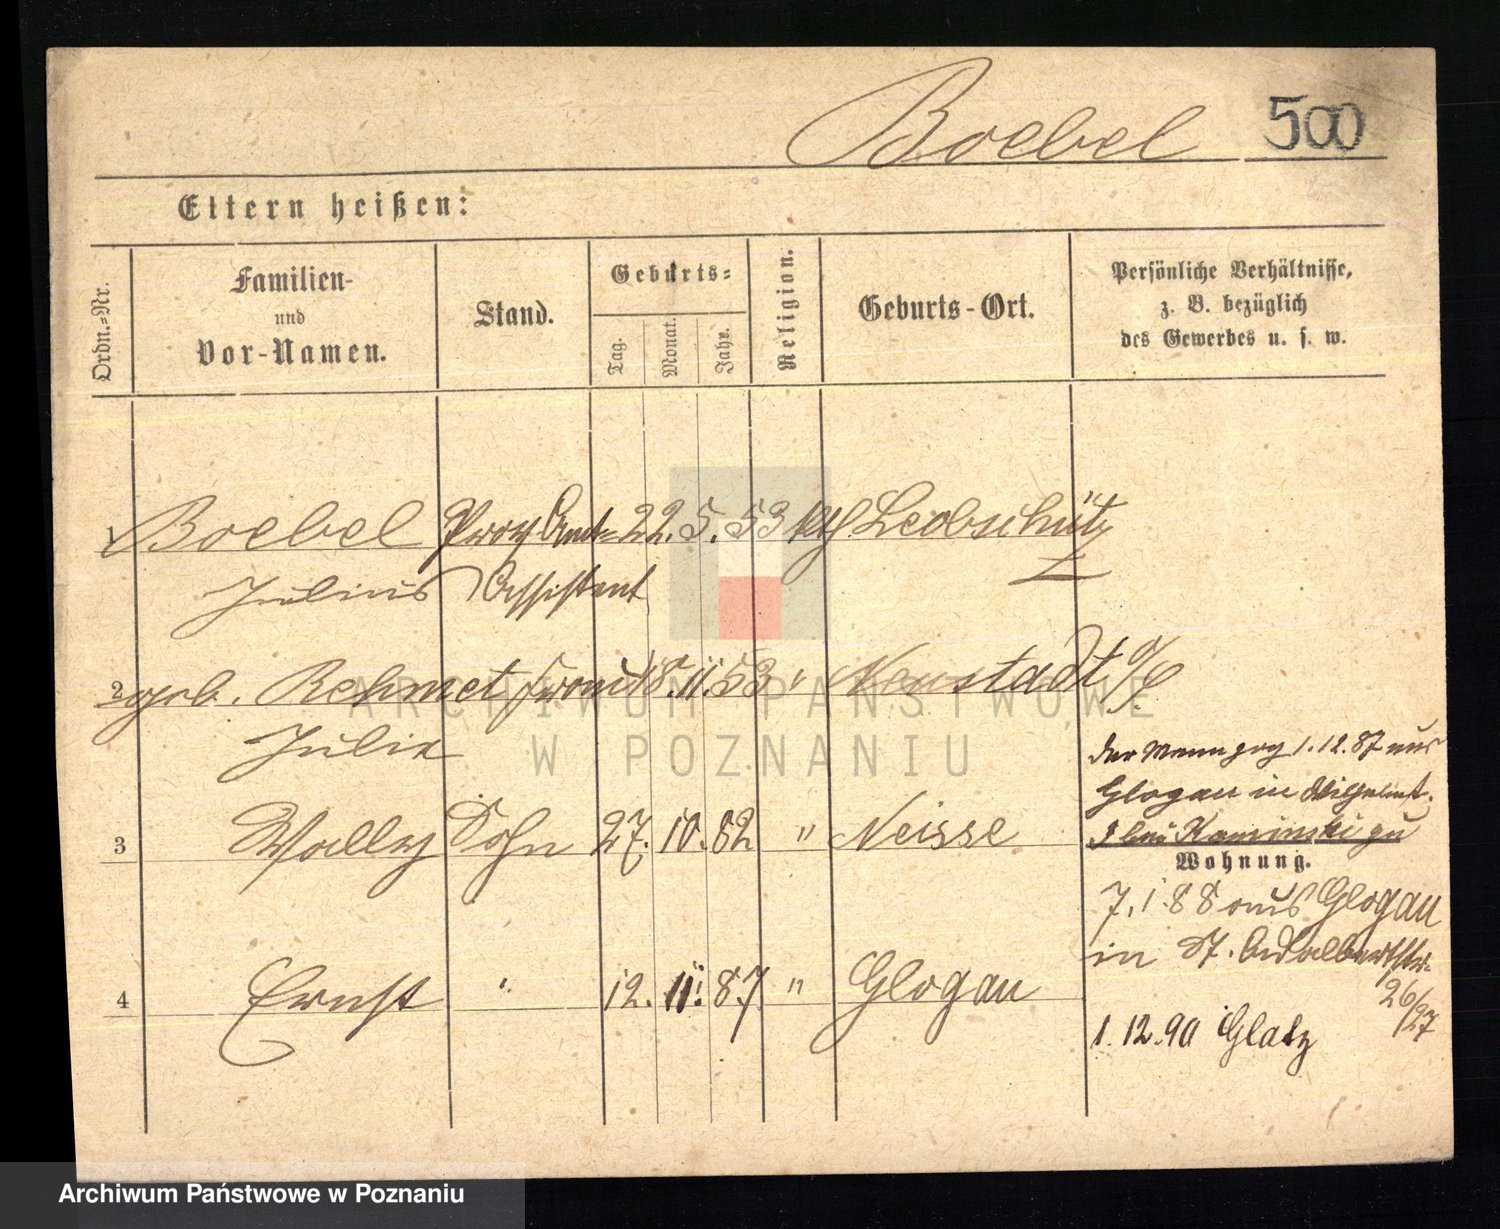 Boebel 500
Eltern heißen:
Ordn.=Nr.
Familien-
und
Vor-Namen.
Stand.
Geburts=
Tag.
Monat.
Jahr.
Religion.
Geburts-Ort.
Persönliche Verhältnisse,
z. B. bezüglich
des Gewerbes u. s. w.
1 Boebel Prov Amt= 22. 5. 53 kth. Leobschütz
Julius Assistent
2 geb. Rehmet Frau 18. 11. 53 " Neustadt o/S
Julie
3 Wally Sohn 27. 10. 82 " Neisse
4 Ernst " 12. 11. 87 " Glogau
der Mann zog 1.12.87 aus
Glogau in Wilhelmst.
bei Kaminski zu
Wohnung.
7.1 88 aus Glogau
in St. Adalbertstr.
26/27
1.12.90 Glatz
ARCHIWUM PAŃSTWOWE
W POZNANIU
Archiwum Państwowe w Poznaniu